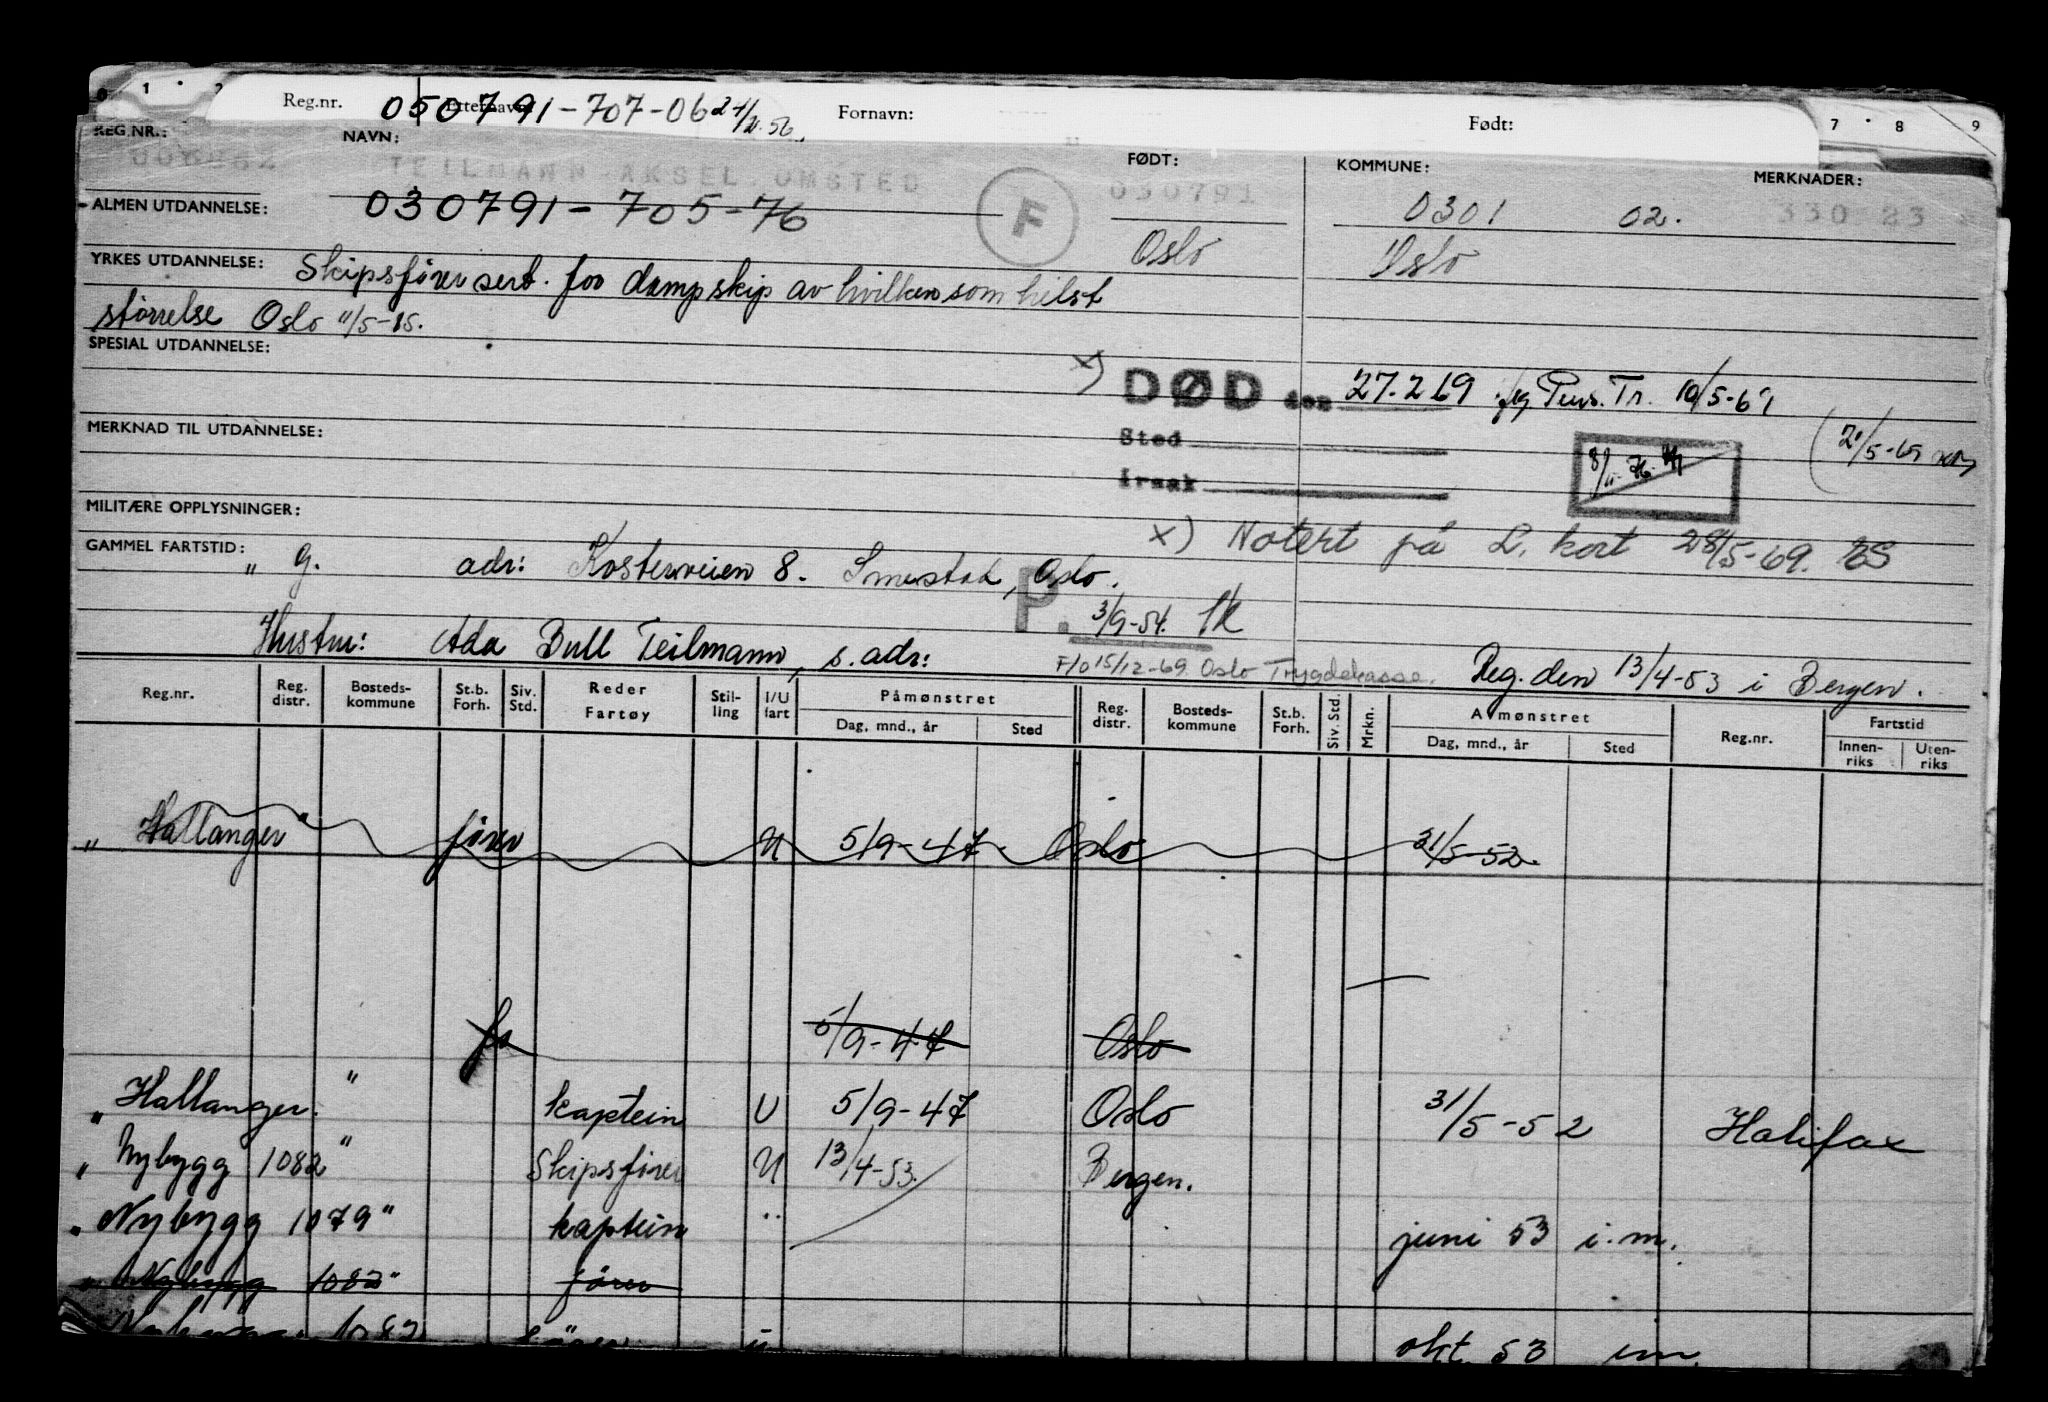 Reg.nr. Etternavn Fornavn: Født:
050791-707-06
REG.NR.: NAVN: FØDT: KOMMUNE: MERKNADER:
TEILMANN AKSEL OMSTED 030791 330 23
ALMEN UTDANNELSE: 030791-705-76 F Oslo 0301 02. Oslo
YRKES UTDANNELSE: Skipsfører sert. for dampskip av hvilken som helst
størrelse Oslo 11/5-15.
SPESIAL UTDANNELSE:
x) DØD den 27.2 69 Pens. Tr. 10/5-69
MERKNAD TIL UTDANNELSE: Sted (21/5-69
MILITÆRE OPPLYSNINGER:
x) Notert på L. kort 28/5-69. ES
GAMMEL FARTSTID: " g. adr: Kosterveien 8. Smestad, Oslo.
P. 3/9-54.
Hustru: Ada Bull Teilmann, s. adr:
F/O 15/12-69 Oslo Trygdekasse. Reg. den 13/4-53 i Bergen.
Reg.nr. Reg. distr. Bosteds-kommune St.b. Forh. Siv. Std. Reder Fartøy Stil-ling I/U fart Påmønstret Dag, mnd., år Sted Reg. distr. Bosteds-kommune St.b. Forh. Siv. Std. Mrkn. Avmønstret Dag, mnd., år Sted Reg.nr. Fartstid Innen-riks Uten-riks
" Hallanger " fører U 5/9-47. Oslo 31/5-52.
fø 5/9-47 Oslo
" Hallanger. " kaptein U 5/9-47 Oslo 31/5-52 Halifax
" Nybygg 1082 " Skipsfører U 13/4-53. Bergen.
" Nybygg 1079 " kaptein " juni 53 i.m.
" Nybygg 1082 " fører
Nybygg 1082 fører u okt. 53 im.